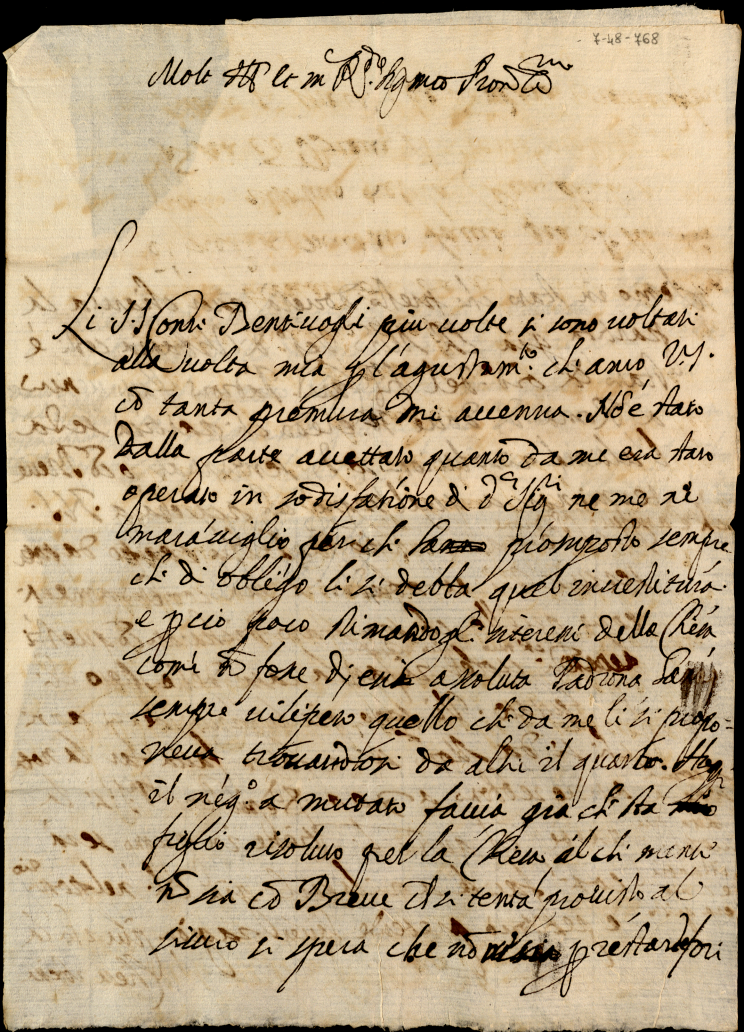 7-48-768
Molt Ill. et m R.do Sig. mio Pron. Col.mo
Li SS. Conti Bentivogli piu volte si sono voltati
alla volta mia p l'agiustam.to ch anco V.S.
cō tanta prémura mi accenna. Nō é stato
dalla parte accettato quanto da me era stato
operato in sodisfatione di d.ti Sig.ri ne me ne
maraviglio per ch hano supposto sempre
ch di obligo li si debba quel investitura
e p cio poco stimando gl'interessi della Chiesa
comé nō fosse di essi assoluta Padrona
sempre vilipeso quello ch da me li si propo=
neva trovandosi da altri il quarto. Hogi
il neg.o a mutato faccia gia ch sta
figlio risoluto per la Chiesa
nō sia cō Breve si tenta provisto al
sicuro si spera che nō prestar